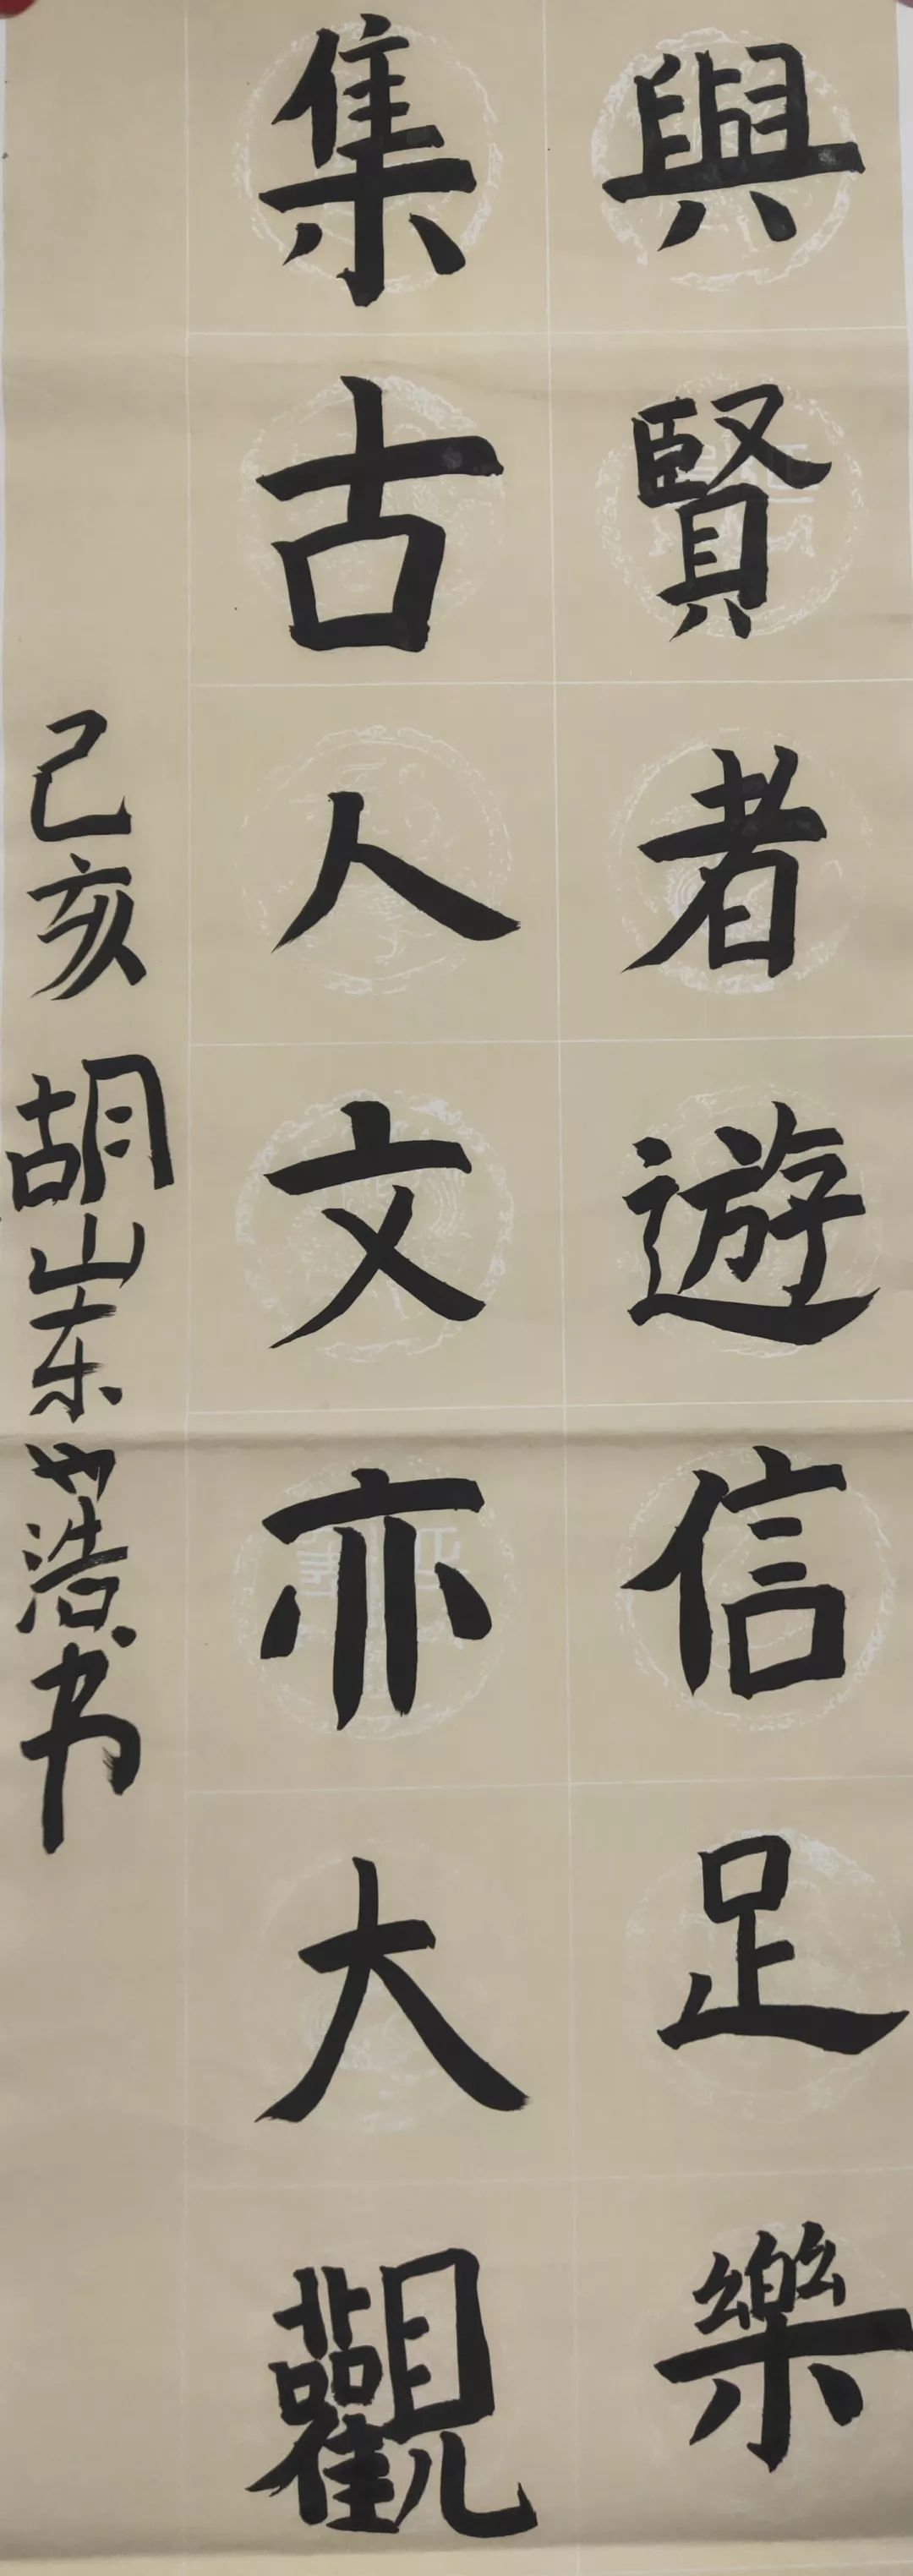 與賢者遊信足樂
集古人文亦大觀
己亥胡山东也浩书